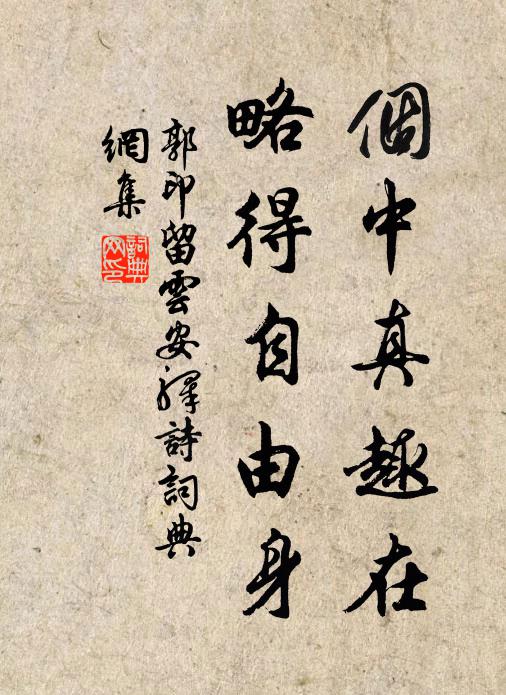 個中真趣在
略得自由身
郭印留雲安驛詩詞典
網集
詞典
网印